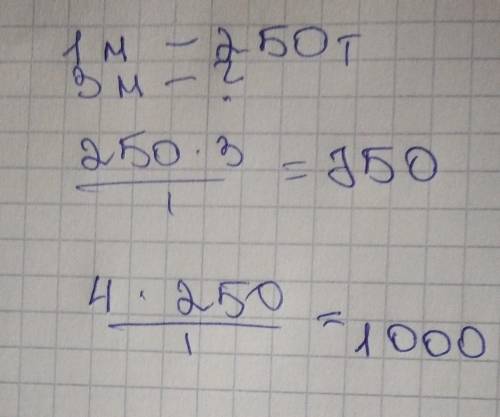 1м - 250т
3м - ?
250 · 3 / 1 = 750
4 · 250 / 1 = 1000